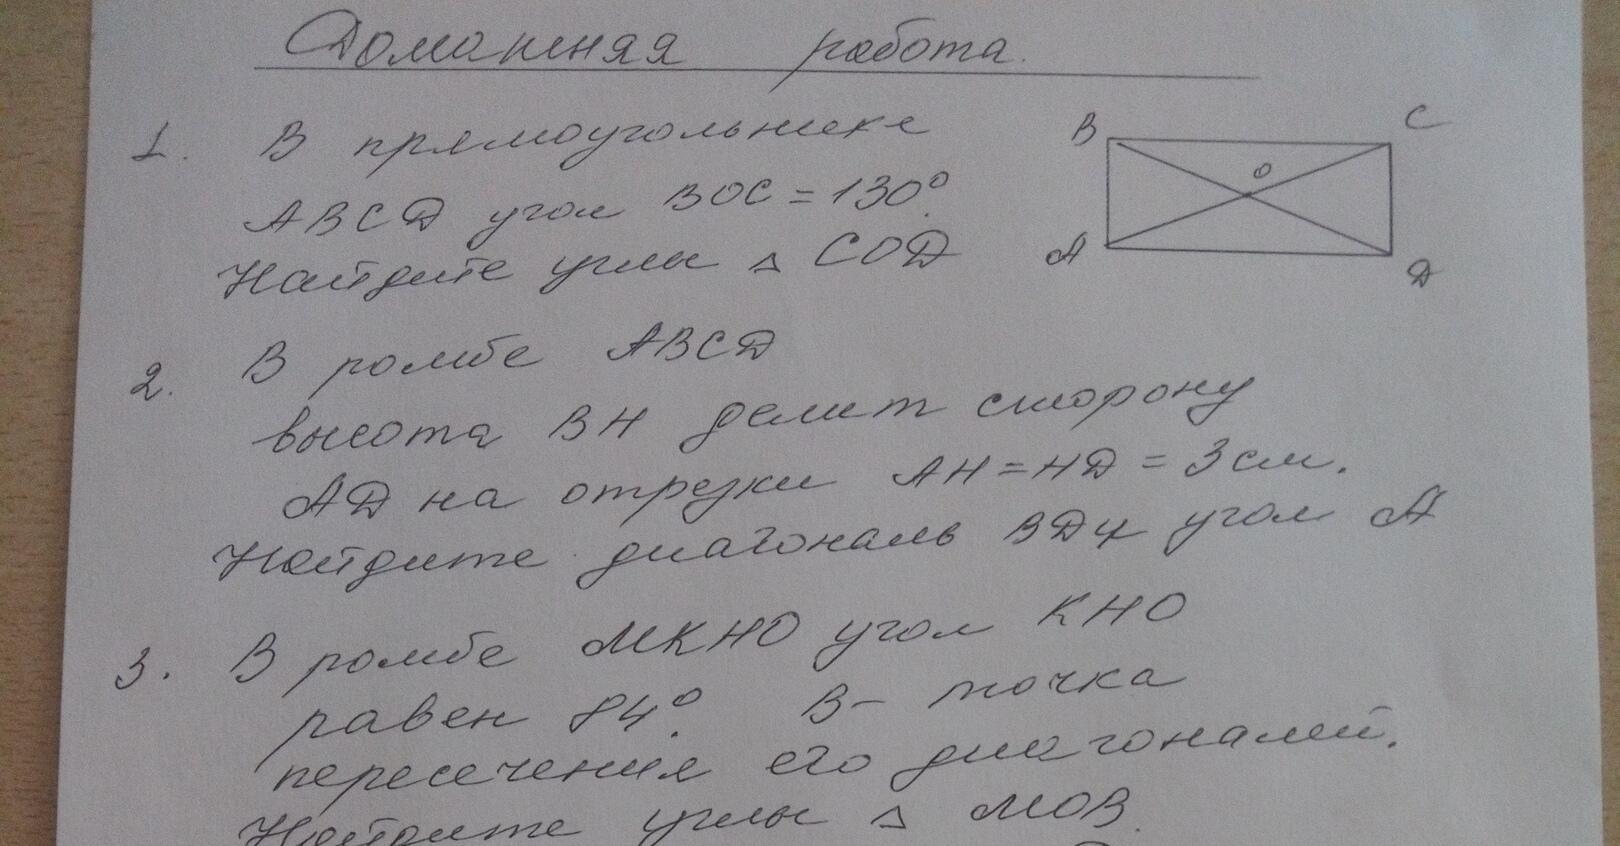 Домашняя работа.
1. В прямоугольнике
ABCD угол BOC = 130°.
Найдите углы △ COD
B
C
O
A
D
2. В ромбе ABCD
высота BH делит сторону
AD на отрезки AH = HD = 3 см.
Найдите диагональ BD и угол A
3. В ромбе МКНО угол КНО
равен 84°. В – точка
пересечения его диагоналей.
Найдите углы △ МОВ.